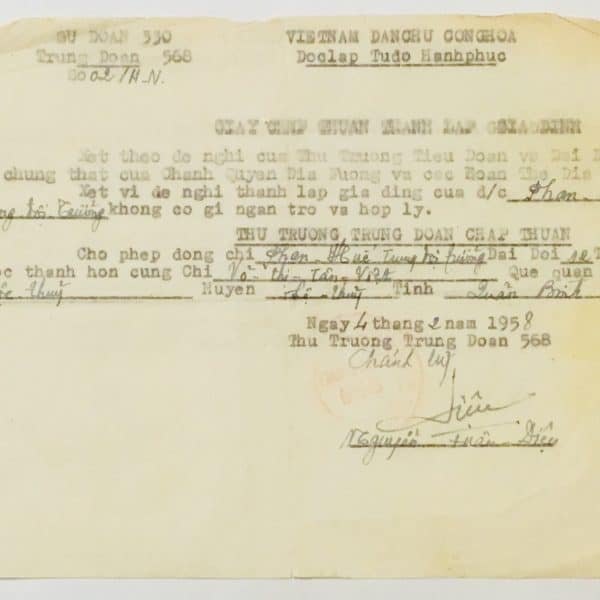 SU DOAN 330
VIETNAM DANCHU CONGHOA
Trung Doan 568
Doclap Tudo Hanhphuc
So 02/H.N.
GIAY CHUAN THANH LAP GIA DINH
Xet theo de nghi cua Thu Truong Tieu Doan va Dai
chung that cua Chanh Quyen Dia Fuong va cac Doan The Dia
Xet vi de nghi thanh lap gia ding cua d/c Phan
Đội Trưởng khong co gi ngan tro va hop ly.
THU TRUONG TRUNG DOAN CHAP THUAN
Cho phep dong chi Phan Huế Trung đội trưởng Dai Doi
thanh hon cung Chi Võ thị Tân Việt Que quan
thuỷ Huyen Lệ thuỷ Tinh Quản Bình
Ngay 4 thang 2 nam 1958
Thu Truong Trung Doan 568
Chánh uỷ
Diêu